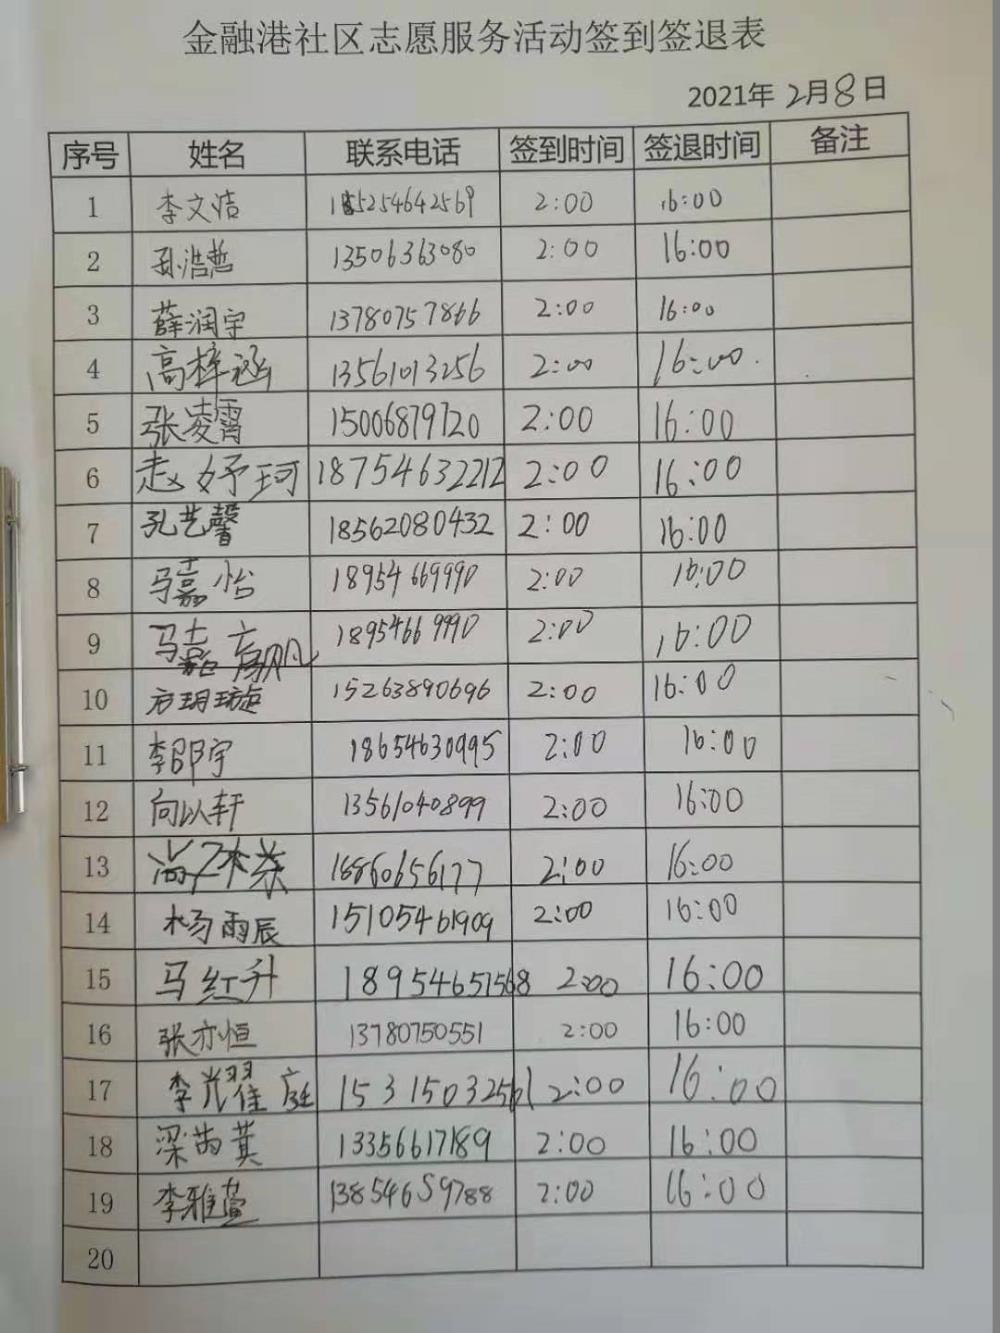 金融港社区志愿服务活动签到签退表
2021年 2月8日
序号 姓名 联系电话 签到时间 签退时间 备注
1 李文洁 15254642569 2:00 16:00
2 孙浩哲 13506363080 2:00 16:00
3 薛润宇 13780757866 2:00 16:00
4 高梓涵 13561013256 2:00 16:00
5 张凌霄 15006879720 2:00 16:00
6 赵妤珂 18754632212 2:00 16:00
7 孔艺馨 18562080432 2:00 16:00
8 马嘉怡 18954669990 2:00 16:00
9 马嘉 18954669990 2:00 16:00
10 玥璇 15263890696 2:00 16:00
11 李郡宇 18654630995 2:00 16:00
12 向以轩 13561040899 2:00 16:00
13 尚 18860656177 2:00 16:00
14 杨雨辰 15105461909 2:00 16:00
15 马红升 18954651568 2:00 16:00
16 张亦恒 13780750551 2:00 16:00
17 李光耀庭 15315032561 2:00 16:00
18 梁 13356617189 2:00 16:00
19 李雅萱 13854659788 2:00 16:00
20